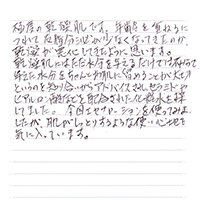 極度の乾燥肌です。年齢を重ねるに
つれて皮脂分泌が少なくなってきたのか、
乾燥が悪化してきたように思います。
乾燥肌にはただ水分を与えるだけではなくて
与えた水分をちゃんと肌に留めることが大切
というのを知り合いからアドバイスされセラミドや
ヒアルロン酸などを配合された化粧水を探
してました。今回エッセンスローションを使ってみま
したが、肌がしっとりするような使い心地を
気に入っています。